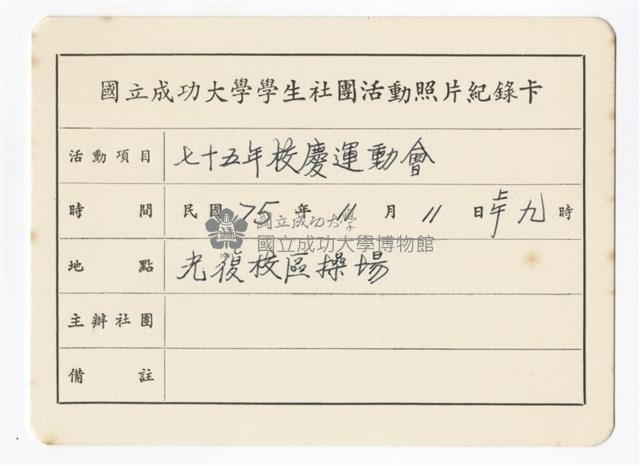 國立成功大學學生社團活動照片紀錄卡
活動項目 七十五年校慶運動會
時間 民國75年11月11日上午九時
國立成功大學
國立成功大學博物館
1931
地點 光復校區操場
主辦社團
備註